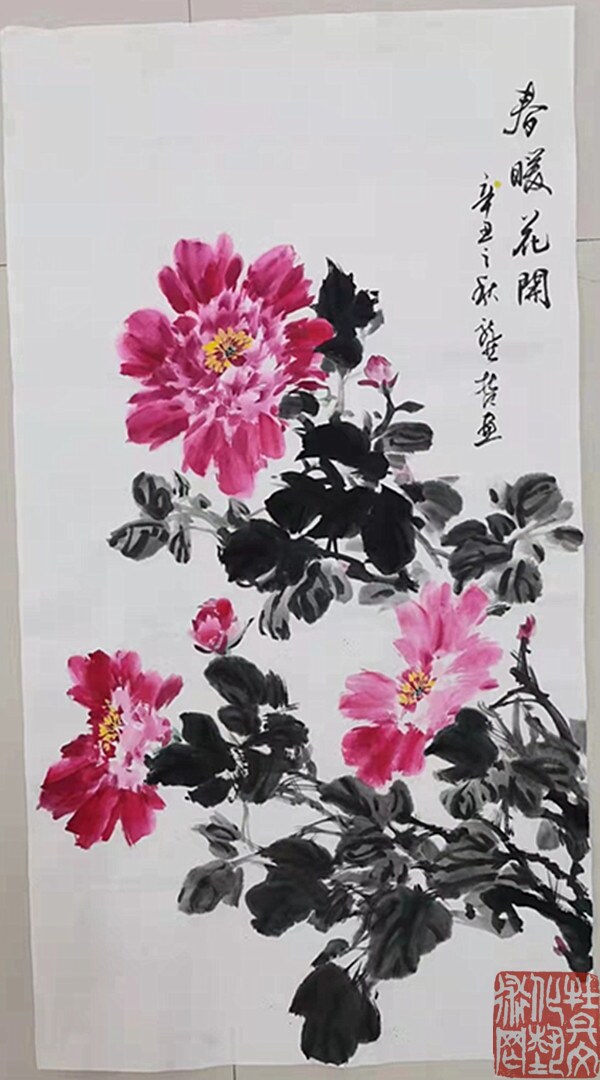 春暖花開
辛丑之秋 龔哲畫